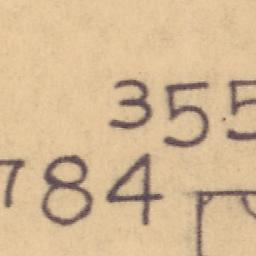 355
784